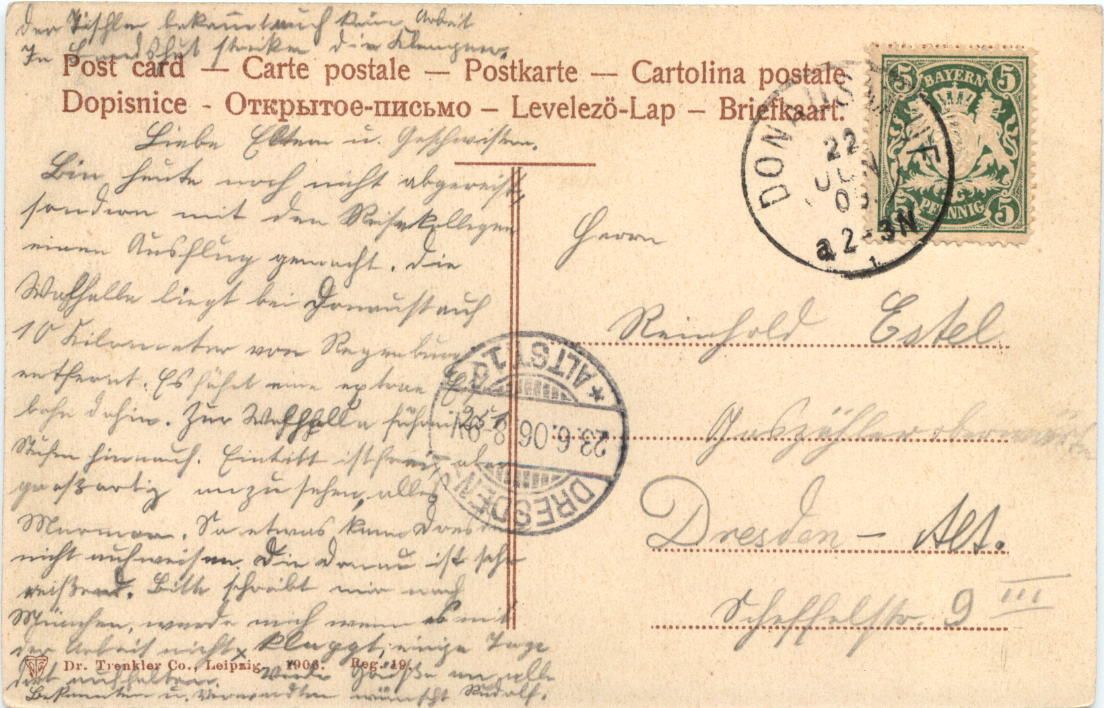 Der Tischler bekommt auch keine Arbeit
In Landshut streiken die Klempner.
Post card — Carte postale — Postkarte — Cartolina postale
Dopisnice - Открытое-письмо – Levelezö-Lap – Briefkaart.
Liebe Eltern u. Geschwister.
Bin heute noch nicht abgereist,
sondern mit den Reisekollegen
einen Ausflug gemacht. Die
Walhalla liegt bei Donaustauf
10 Kilometer von Regensburg
entfernt. Es führt eine extrae
bahn dahin. Zur Walhalla führen
Stufen hinauf. Eintritt ist frei,
großartig anzusehen, alles
Marmor. So etwas kann Dresden
nicht aufweisen. Die Donau ist sehr
reißend. Bitte schreibt mir nach
München, werde mich wenn es mit
der Arbeit nicht klappt, einige Tage
dort aufhalten. Viele Grüße an alle
Bekannten u. Verwandten wünscht Rudolf.
BAYERN
5 5
5 5
PFENNIG
22
JUN
06
a 2-3N
Herrn
Reinhold Estel
Gaszähler
Dresden – Alt.
Scheffelstr. 9 III
DRESDEN
23.6.06. 8-9V.
* ALTST. 1
Dr. Trenkler Co., Leipzig. 1906. Reg. 19.